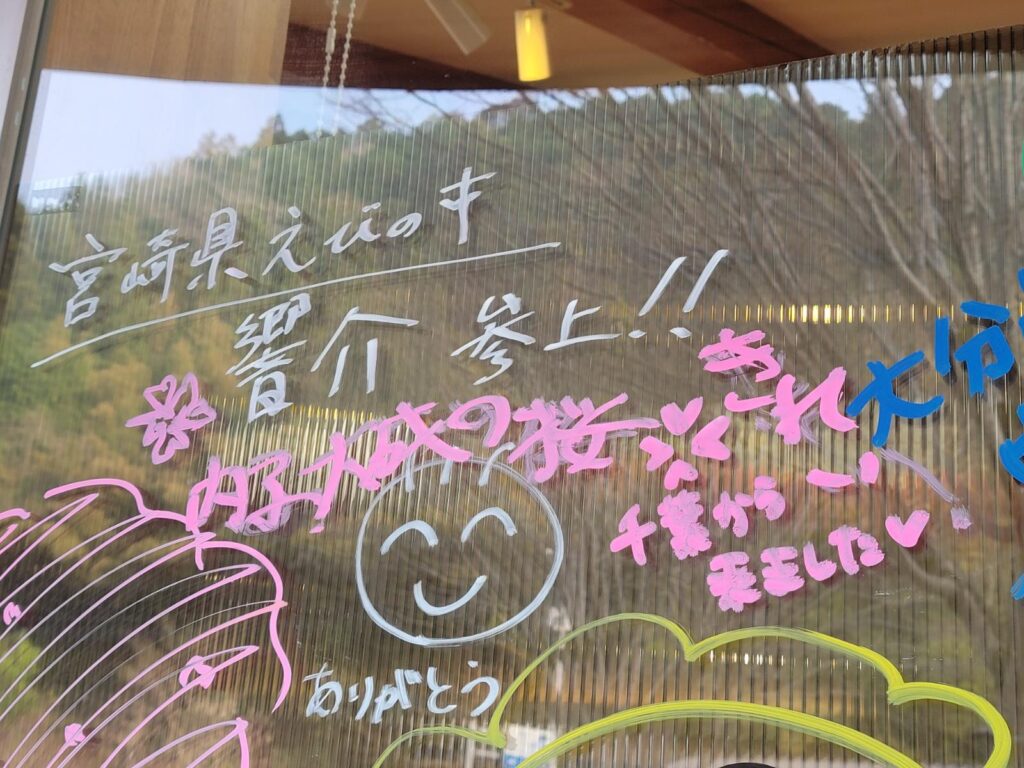 宮崎県えびの市
響介 参上!!
好大城の桜がきれーい
千葉から
来ましたー♥
大分
ありがとう